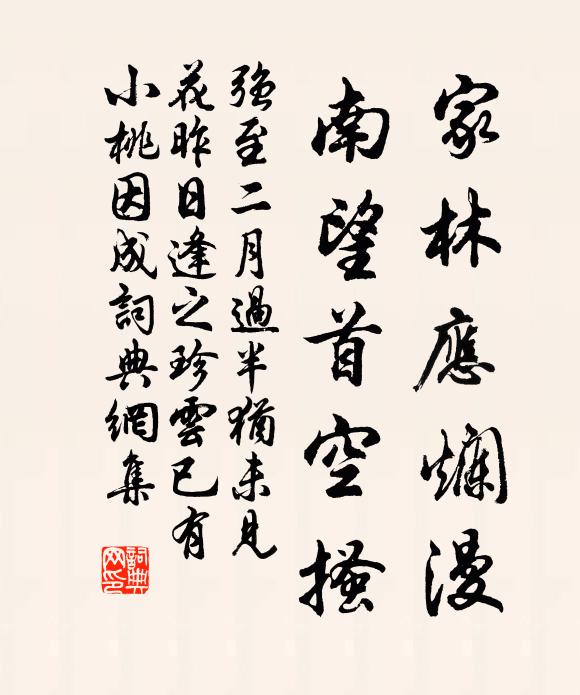 家林應爛漫
南望首空搔
強至二月過半猶未見
花昨日逢之珍雲已有
小桃因成詞典網集
詞典網印